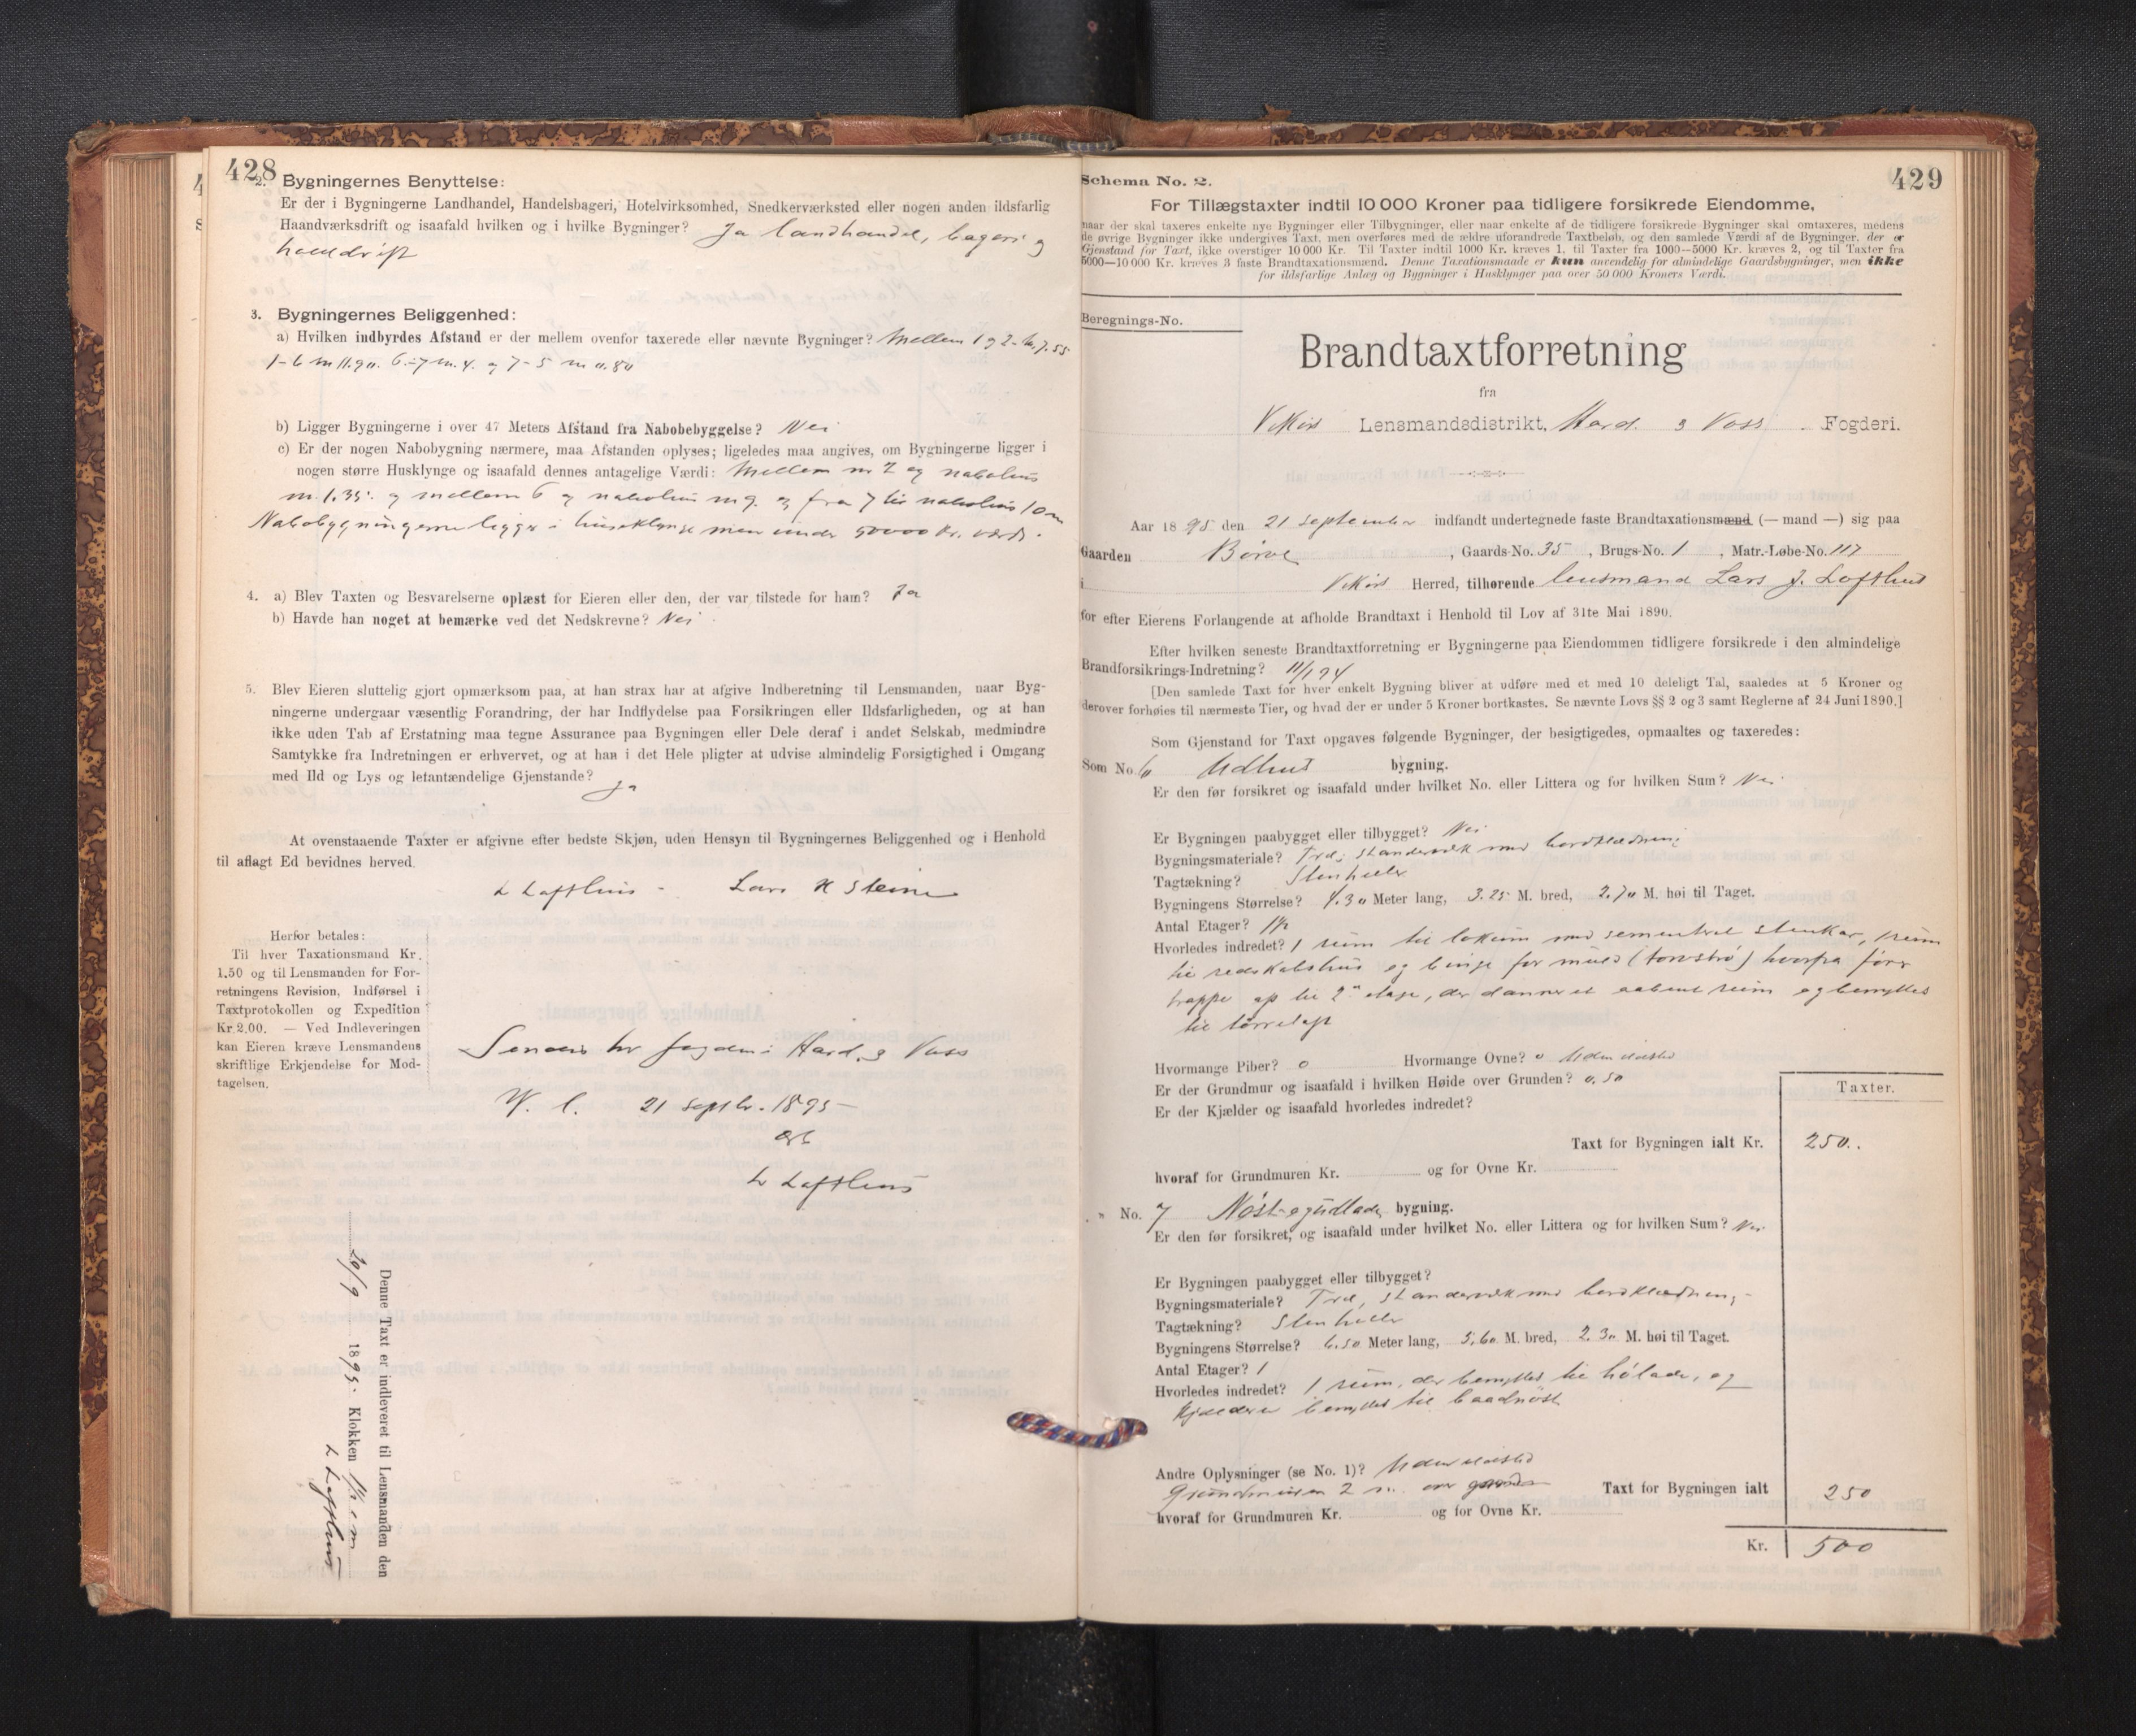 428
2. Bygningernes Benyttelse:
Er der i Bygningerne Landhandel, Handelsbageri, Hotelvirksomhed, Snedkerværksted eller nogen anden ildsfarlig
Haandværksdrift og isaafald hvilken og i hvilke Bygninger? Ja landhandel, bageri og
hoteldrift
3. Bygningernes Beliggenhed:
a) Hvilken indbyrdes Afstand er der mellem ovenfor taxerede eller nævnte Bygninger? Mellem 1 og 2 - m. 7.55
1-6 m 11.90. 6-7 m. 4. og 7-5 m 0.80
b) Ligger Bygningerne i over 47 Meters Afstand fra Nabobebyggelse? Nei
c) Er der nogen Nabobygning nærmere, maa Afstanden oplyses; ligeledes maa angives, om Bygningerne ligger i
nogen større Husklynge og isaafald dennes antagelige Værdi: Mellem nr 2 og nabohus
m. 1.35. og mellem 6 og nabohus m 9. og fra 7 til nabohus 10 m
Nabobygningerne ligger i huseklynge men under 50000 kr. værdi.
4. a) Blev Taxten og Besvarelserne oplæst for Eieren eller den, der var tilstede for ham? Ja
b) Havde han noget at bemærke ved det Nedskrevne? Nei
5. Blev Eieren sluttelig gjort opmærksom paa, at han strax har at afgive Indberetning til Lensmanden, naar Byg-
ningerne undergaar væsentlig Forandring, der har Indflydelse paa Forsikringen eller Ildsfarligheden, og at han
ikke uden Tab af Erstatning maa tegne Assurance paa Bygningen eller Dele deraf i andet Selskab, medmindre
Samtykke fra Indretningen er erhvervet, og at han i det Hele pligter at udvise almindelig Forsigtighed i Omgang
med Ild og Lys og letantændelige Gjenstande?
Ja
At ovenstaaende Taxter er afgivne efter bedste Skjøn, uden Hensyn til Bygningernes Beliggenhed og i Henhold
til aflagt Ed bevidnes herved.
L Lofthus - Lars H Steine
Herfor betales:
Til hver Taxationsmand Kr.
1,50 og til Lensmanden for For-
retningens Revision, Indførsel i
Taxtprotokollen og Expedition
Kr. 2.00. — Ved Indleveringen
kan Eieren kræve Lensmandens
skriftlige Erkjendelse for Mod-
tagelsen.
Sendes hr fogden i Hard. og Voss
V. l. 21 septbr. 1895
L Lofthus
Denne Taxt er indleveret til Lensmanden den
20/9 1895. Klokken
L Lofthus
429
Schema No. 2.
For Tillægstaxter indtil 10 000 Kroner paa tidligere forsikrede Eiendomme,
naar der skal taxeres enkelte nye Bygninger eller Tilbygninger, eller naar enkelte af de tidligere forsikrede Bygninger skal omtaxeres, medens
de øvrige Bygninger ikke undergives Taxt, men overføres med de ældre uforandrede Taxtbeløb, og den samlede Værdi af de Bygninger, der er
Gjenstand for Taxt, ikke overstiger 10 000 Kr. Til Taxter indtil 1000 Kr. kræves 1, til Taxter fra 1000—5000 Kr. kræves 2, og til Taxter fra
5000—10 000 Kr. kræves 3 faste Brandtaxationsmænd. Denne Taxationsmaade er kun anvendelig for almindelige Gaardsbygninger, men ikke
for ildsfarlige Anlæg og Bygninger i Husklynger paa over 50 000 Kroners Værdi.
Beregnings-No.
Brandtaxtforretning
fra
Vikør Lensmandsdistrikt, Hard. og Voss Fogderi.
Aar 1895 den 21 september indfandt undertegnede faste Brandtaxationsmænd (— mand —) sig paa
Gaarden Børve, Gaards-No. 35, Brugs-No. 1, Matr.-Løbe-No. 117
i Vikør Herred, tilhørende lensmand Lars J. Lofthus
for efter Eierens Forlangende at afholde Brandtaxt i Henhold til Lov af 31te Mai 1890.
Efter hvilken seneste Brandtaxtforretning er Bygningerne paa Eiendommen tidligere forsikrede i den almindelige
Brandforsikrings-Indretning? 11/1 94
[Den samlede Taxt for hver enkelt Bygning bliver at udføre med et med 10 deleligt Tal, saaledes at 5 Kroner og
derover forhøies til nærmeste Tier, og hvad der er under 5 Kroner bortkastes. Se nævnte Lovs §§ 2 og 3 samt Reglerne af 24 Juni 1890.]
Som Gjenstand for Taxt opgaves følgende Bygninger, der besigtigedes, opmaaltes og taxeredes:
Som No. 6 Udhus bygning.
Er den før forsikret og isaafald under hvilket No. eller Littera og for hvilken Sum? Nei
Er Bygningen paabygget eller tilbygget? Nei
Bygningsmateriale? Træ, standerværk med bordklædning
Tagtækning? Stenheller
Bygningens Størrelse? 4.30 Meter lang, 3.25 M. bred, 2.70 M. høi til Taget.
Antal Etager? 1½
Hvorledes indredet? 1 rum til lokum med sementeret stenkar, 1 rum
til redskabshus og binge for muld (torvstrø) hvorfra fører
trappe op til 2den etage, der danner et aabent rum og benyttes
til tørreloft
Hvormange Piber? 0 Hvormange Ovne? 0 Uden ildsted
Er der Grundmur og isaafald i hvilken Høide over Grunden? 0.50
Er der Kjælder og isaafald hvorledes indredet?
Taxter.
Taxt for Bygningen ialt Kr. 250..
hvoraf for Grundmuren Kr. og for Ovne Kr.
" No. 7 Nøst og udlade bygning.
Er den før forsikret, og isaafald under hvilket No. eller Littera og for hvilken Sum? Nei
Er Bygningen paabygget eller tilbygget?
Bygningsmateriale? Træ, standerværk med bordklædning
Tagtækning? Stenheller
Bygningens Størrelse? 6.50 Meter lang, 5,60 M. bred, 2.30 M. høi til Taget.
Antal Etager? 1
Hvorledes indredet? 1 rum, der benyttes til hølade, og
kjælder benyttes til baadnøst
Andre Oplysninger (se No. 1)? Uden ildsted
Grundmuren 2 m. over grunden Taxt for Bygningen ialt 250
hvoraf for Grundmuren Kr. og for Ovne Kr.
Kr. 500